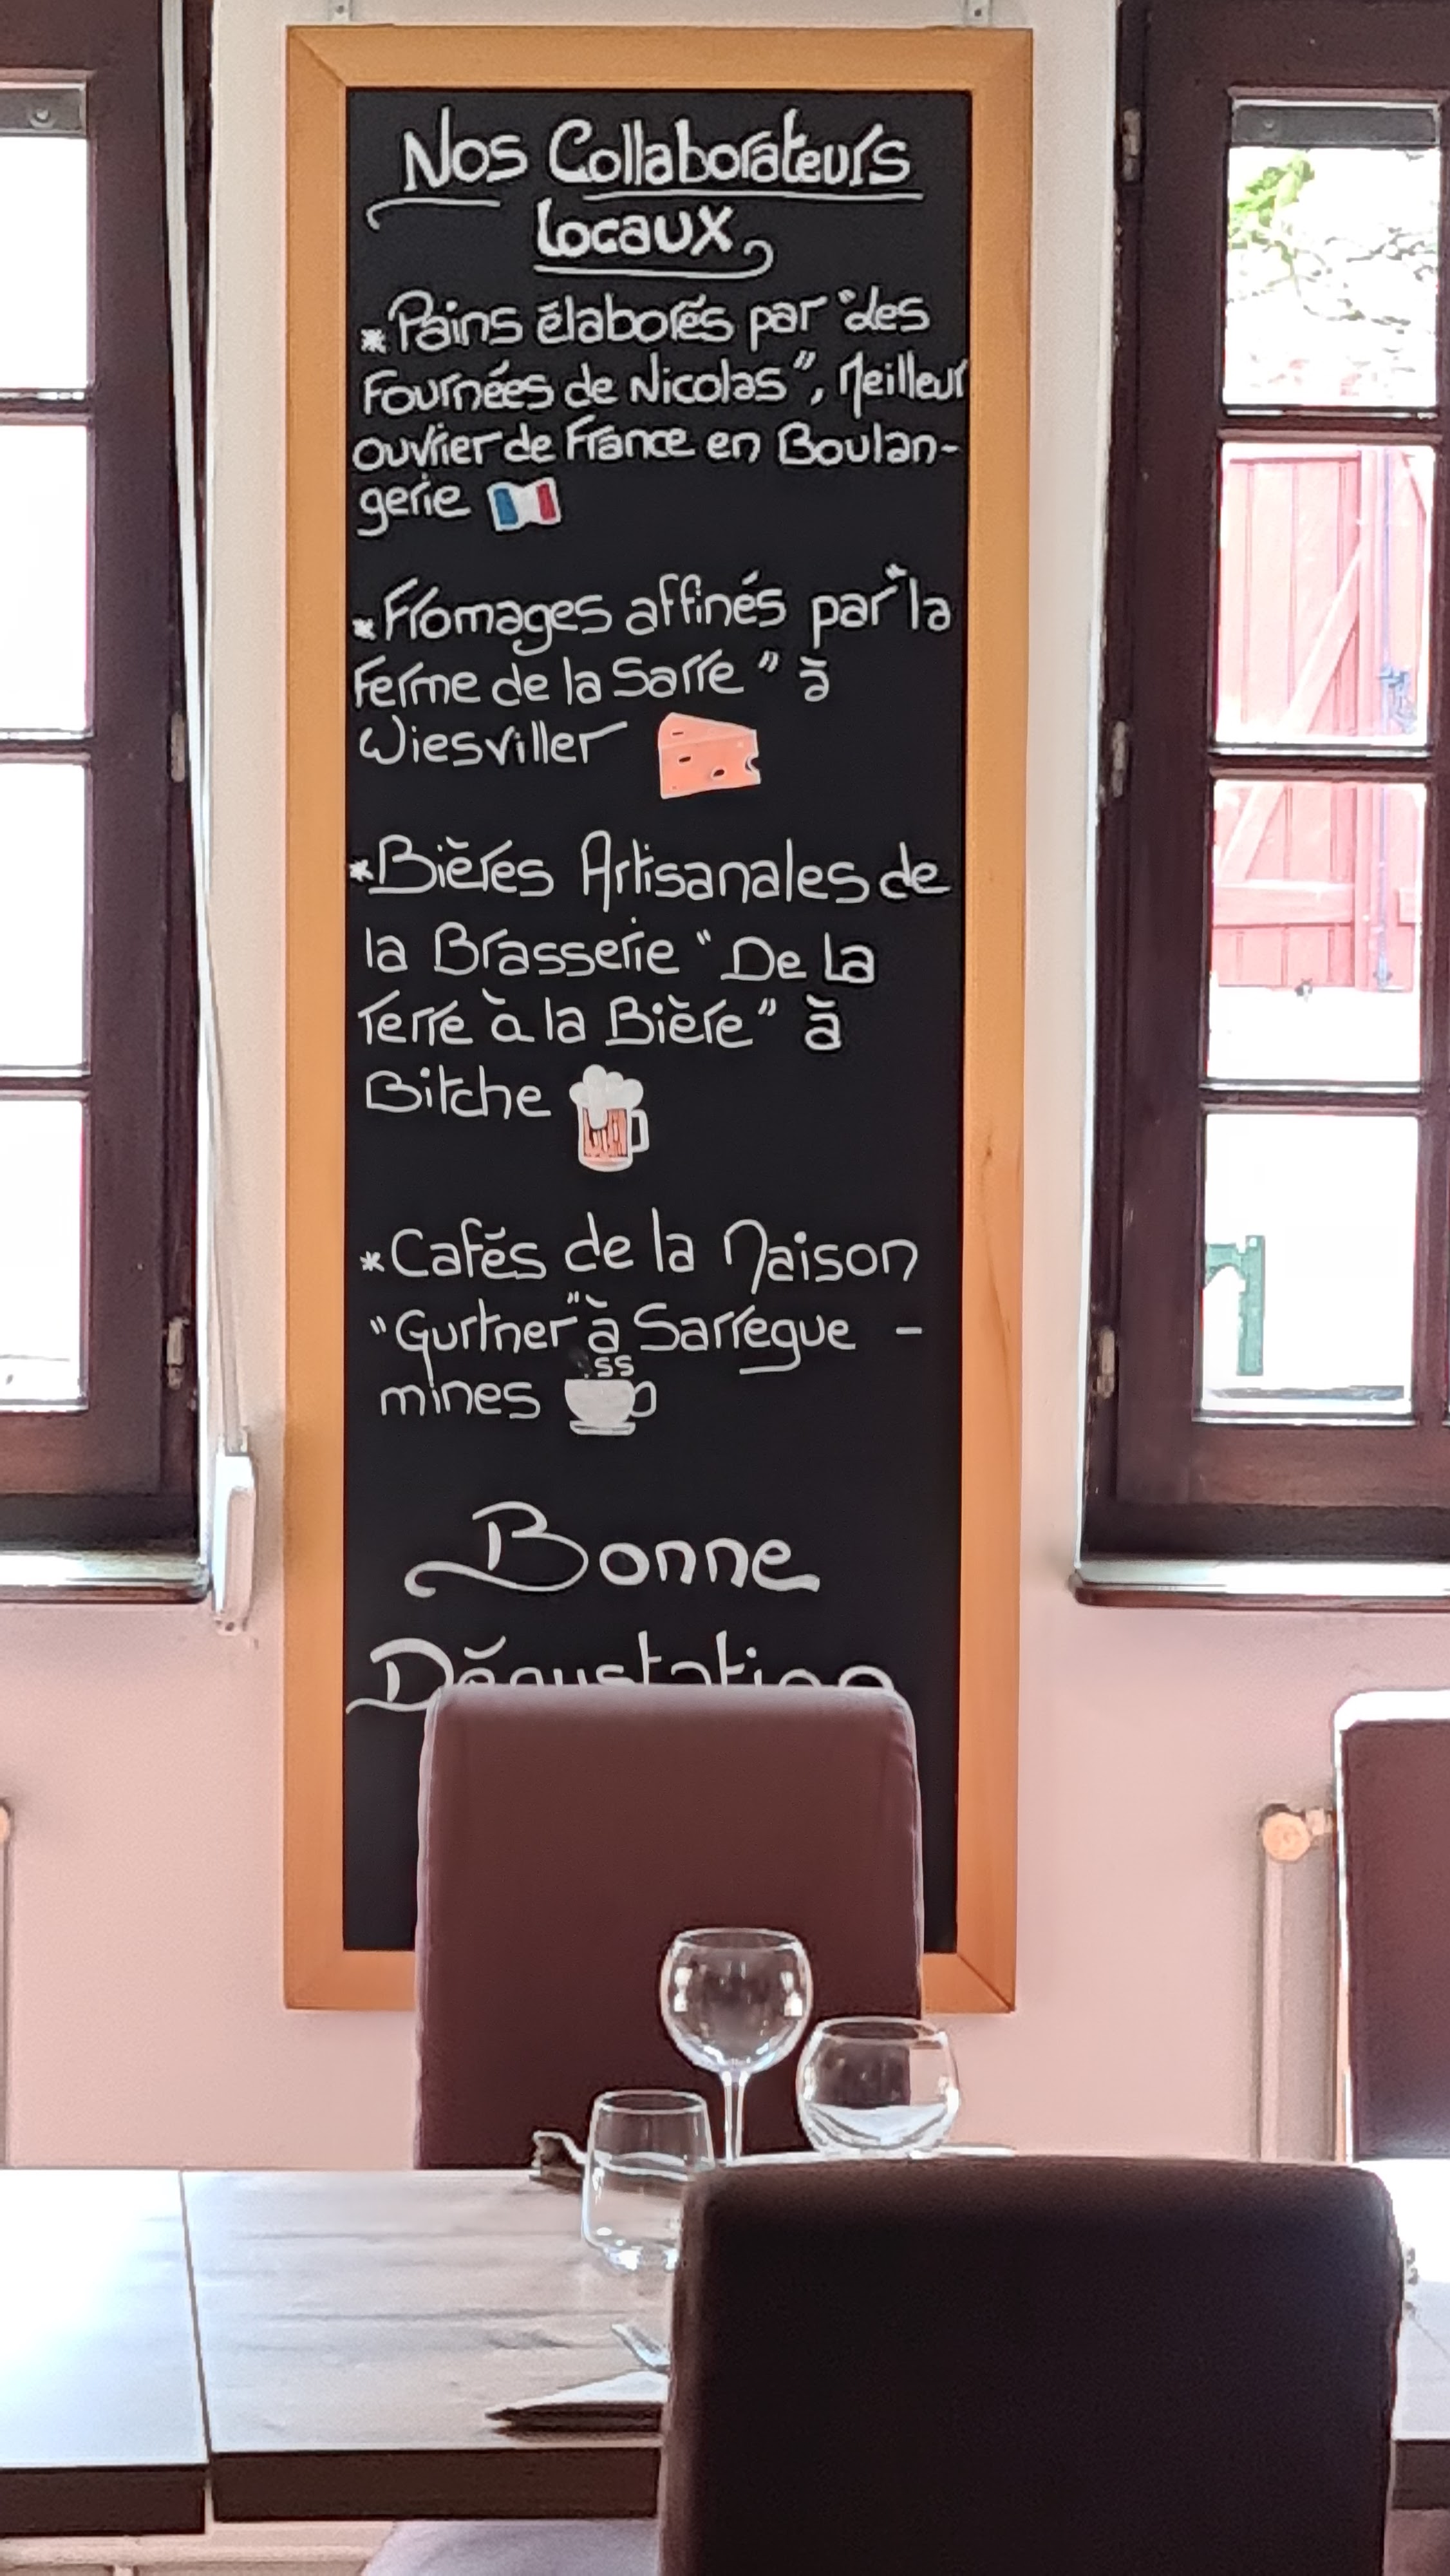 Nos Collaborateurs
locaux
*Pains élaborés par "des
Fournées de Nicolas", Meilleur
ouvrier de France en Boulan-
gerie
*Fromages affinés par "la
Ferme de la Sarre" à
Wiesviller
*Bières Artisanales de
la Brasserie "De La
Terre à la Bière" à
Bitche
*Cafés de la Maison
"Gurtner" à Sarregue-
mines
Bonne
Dégustation